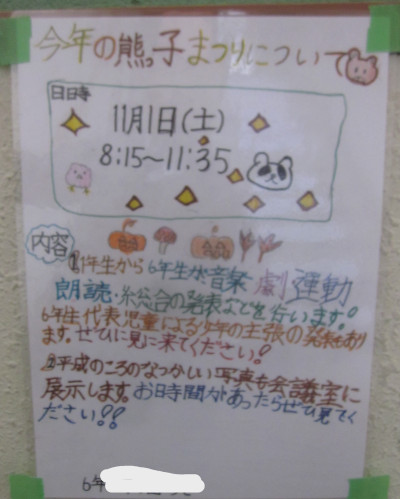 今年の熊っ子まつりについて
日時
11月1日(土)
8:15～11:35
内容
①1年生から6年生が音楽 劇 運動
朗読・総合の発表などを行います!
6年生代表児童による少年の主張の発表もあり
ます。ぜひに見に来てください!
②平成のころのなつかしい写真を会議室に
展示します。お時間があったらぜひ見てく
ださい!!
6年